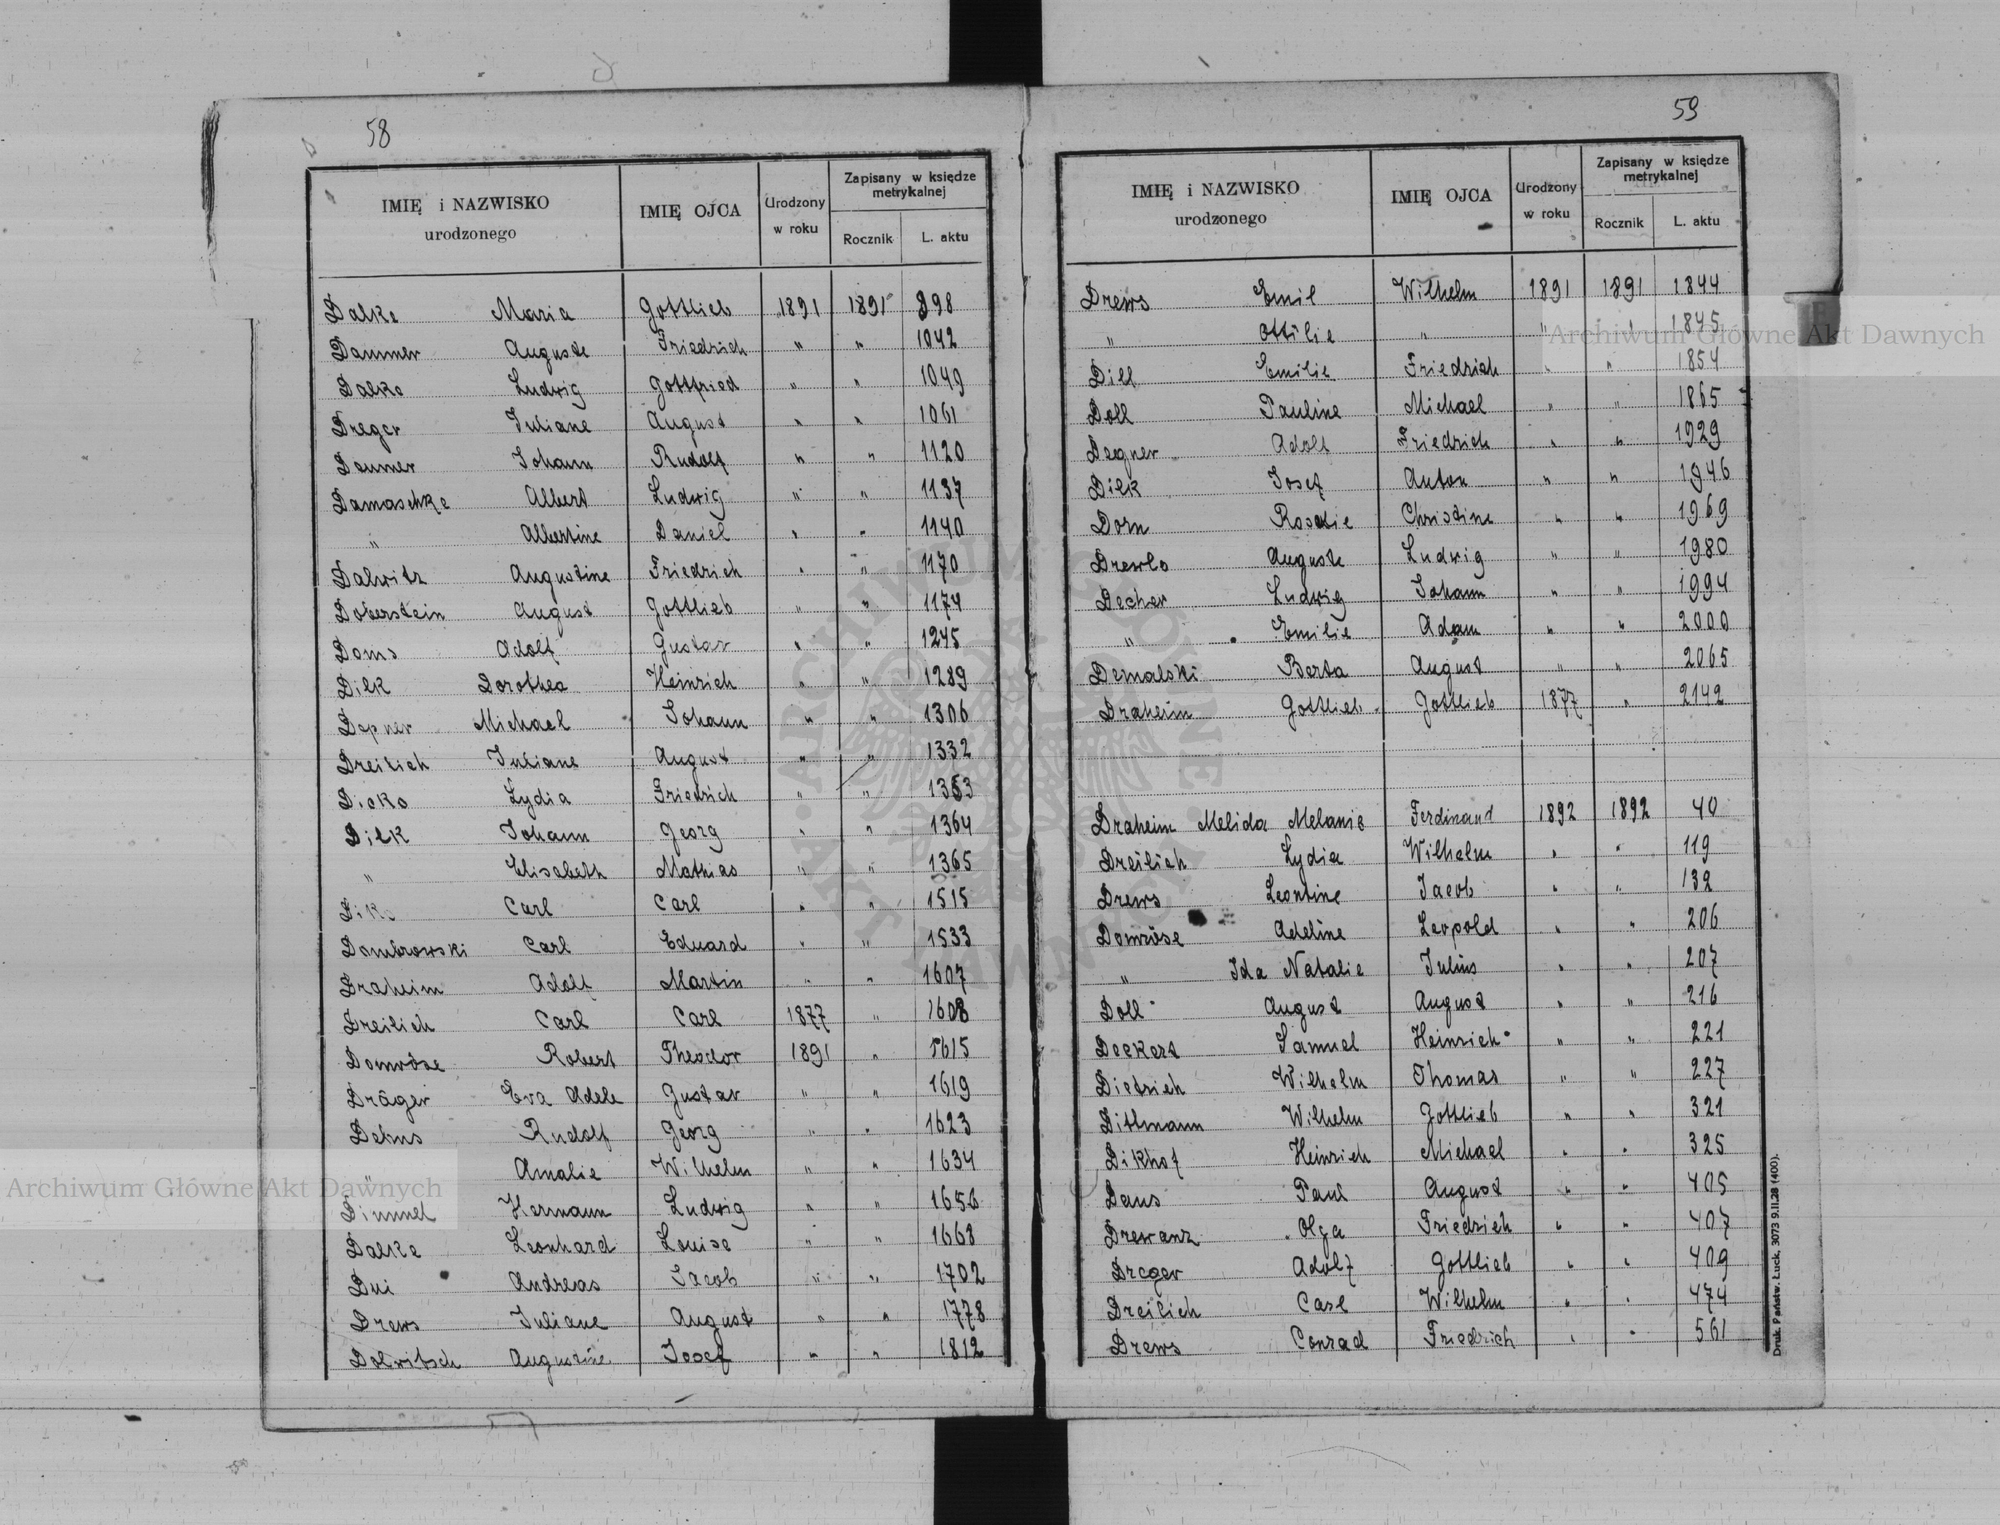 58
IMIĘ i NAZWISKO urodzonego IMIĘ OJCA Urodzony w roku Zapisany w księdze metrykalnej Rocznik L. aktu
Dalke Maria Gottlieb 1891 1891 898
Dammer Auguste Friedrich " " 1042
Dalke Ludwig Gottfried " " 1049
Dreger Juliane August " " 1061
Dammer Johann Rudolf " " 1120
Damaschke Albert Ludwig " " 1137
" Albertine Daniel " " 1140
Dalwitz Augustine Friedrich " " 1170
Doberstein August Gottlieb " " 1174
Doms Adolf Gustav " " 1245
Dilk Dorothea Heinrich " " 1289
Depner Michael Johann " " 1306
Dreilich Juliane August " " 1332
Dicko Lydia Friedrich " " 1353
Dilk Johann Georg " " 1364
" Elisabeth Mathias " " 1365
Carl Carl " " 1515
Dombrowski Carl Eduard " " 1533
Draheim Adolf Martin " " 1607
Dreilich Carl Carl 1877 " 1608
Domröse Robert Theodor 1891 " 1615
Dräger Eva Adele Gustav " " 1619
Dehns Rudolf Georg " " 1623
" Amalie Wilhelm " " 1634
Dimmel Hermann Ludwig " " 1656
Dalke Leonhard Louise " " 1668
Dui Andreas Jacob " " 1702
Drews Juliane August " " 1778
Dolwitsch Augustine Josef " " 1812
59
IMIĘ i NAZWISKO urodzonego IMIĘ OJCA Urodzony w roku Zapisany w księdze metrykalnej Rocznik L. aktu
Drews Emil Wilhelm 1891 1891 1844
" Ottilie " " " 1845
Dill Emilie Friedrich " " 1854
Doll Pauline Michael " " 1865
Degner Adolf Friedrich " " 1929
Dilk Josef Anton " " 1946
Dorn Rosalie Christine " " 1969
Drewlo Auguste Ludwig " " 1980
Decher Ludwig Johann " " 1994
" Emilie Adam " " 2000
Demalski Berta August " " 2065
Draheim Gottlieb Gottlieb 1877 " 2142
Draheim Melida Melanie Ferdinand 1892 1892 40
Dreilich Lydia Wilhelm " " 119
Drews Leontine Jacob " " 132
Domröse Adeline Leopold " " 206
" Ida Natalie Julius " " 207
Doll August August " " 216
Deekert Samuel Heinrich " " 221
Dietrich Wilhelm Thomas " " 227
Dittmann Wilhelm Gottlieb " " 321
Dikhof Heinrich Michael " " 325
Daus Paul August " " 405
Drewanz Olga Friedrich " " 407
Dreger Adolf Gottlieb " " 409
Dreilich Carl Wilhelm " " 474
Drews Conrad Friedrich " " 561
Druk. Państw. Łuck. 3073 9.II.28 (400).
Archiwum Główne Akt Dawnych
Archiwum Główne Akt Dawnych
ARCHIWUM GŁÓWNE AKT DAWNYCH